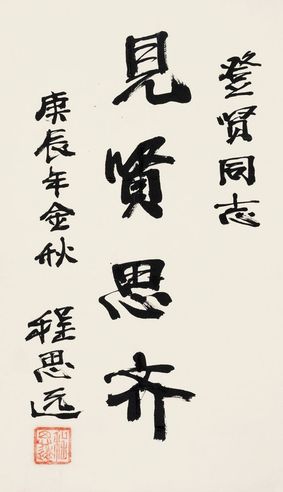 登贤同志
見贤思齐
庚辰年金秋
程思远